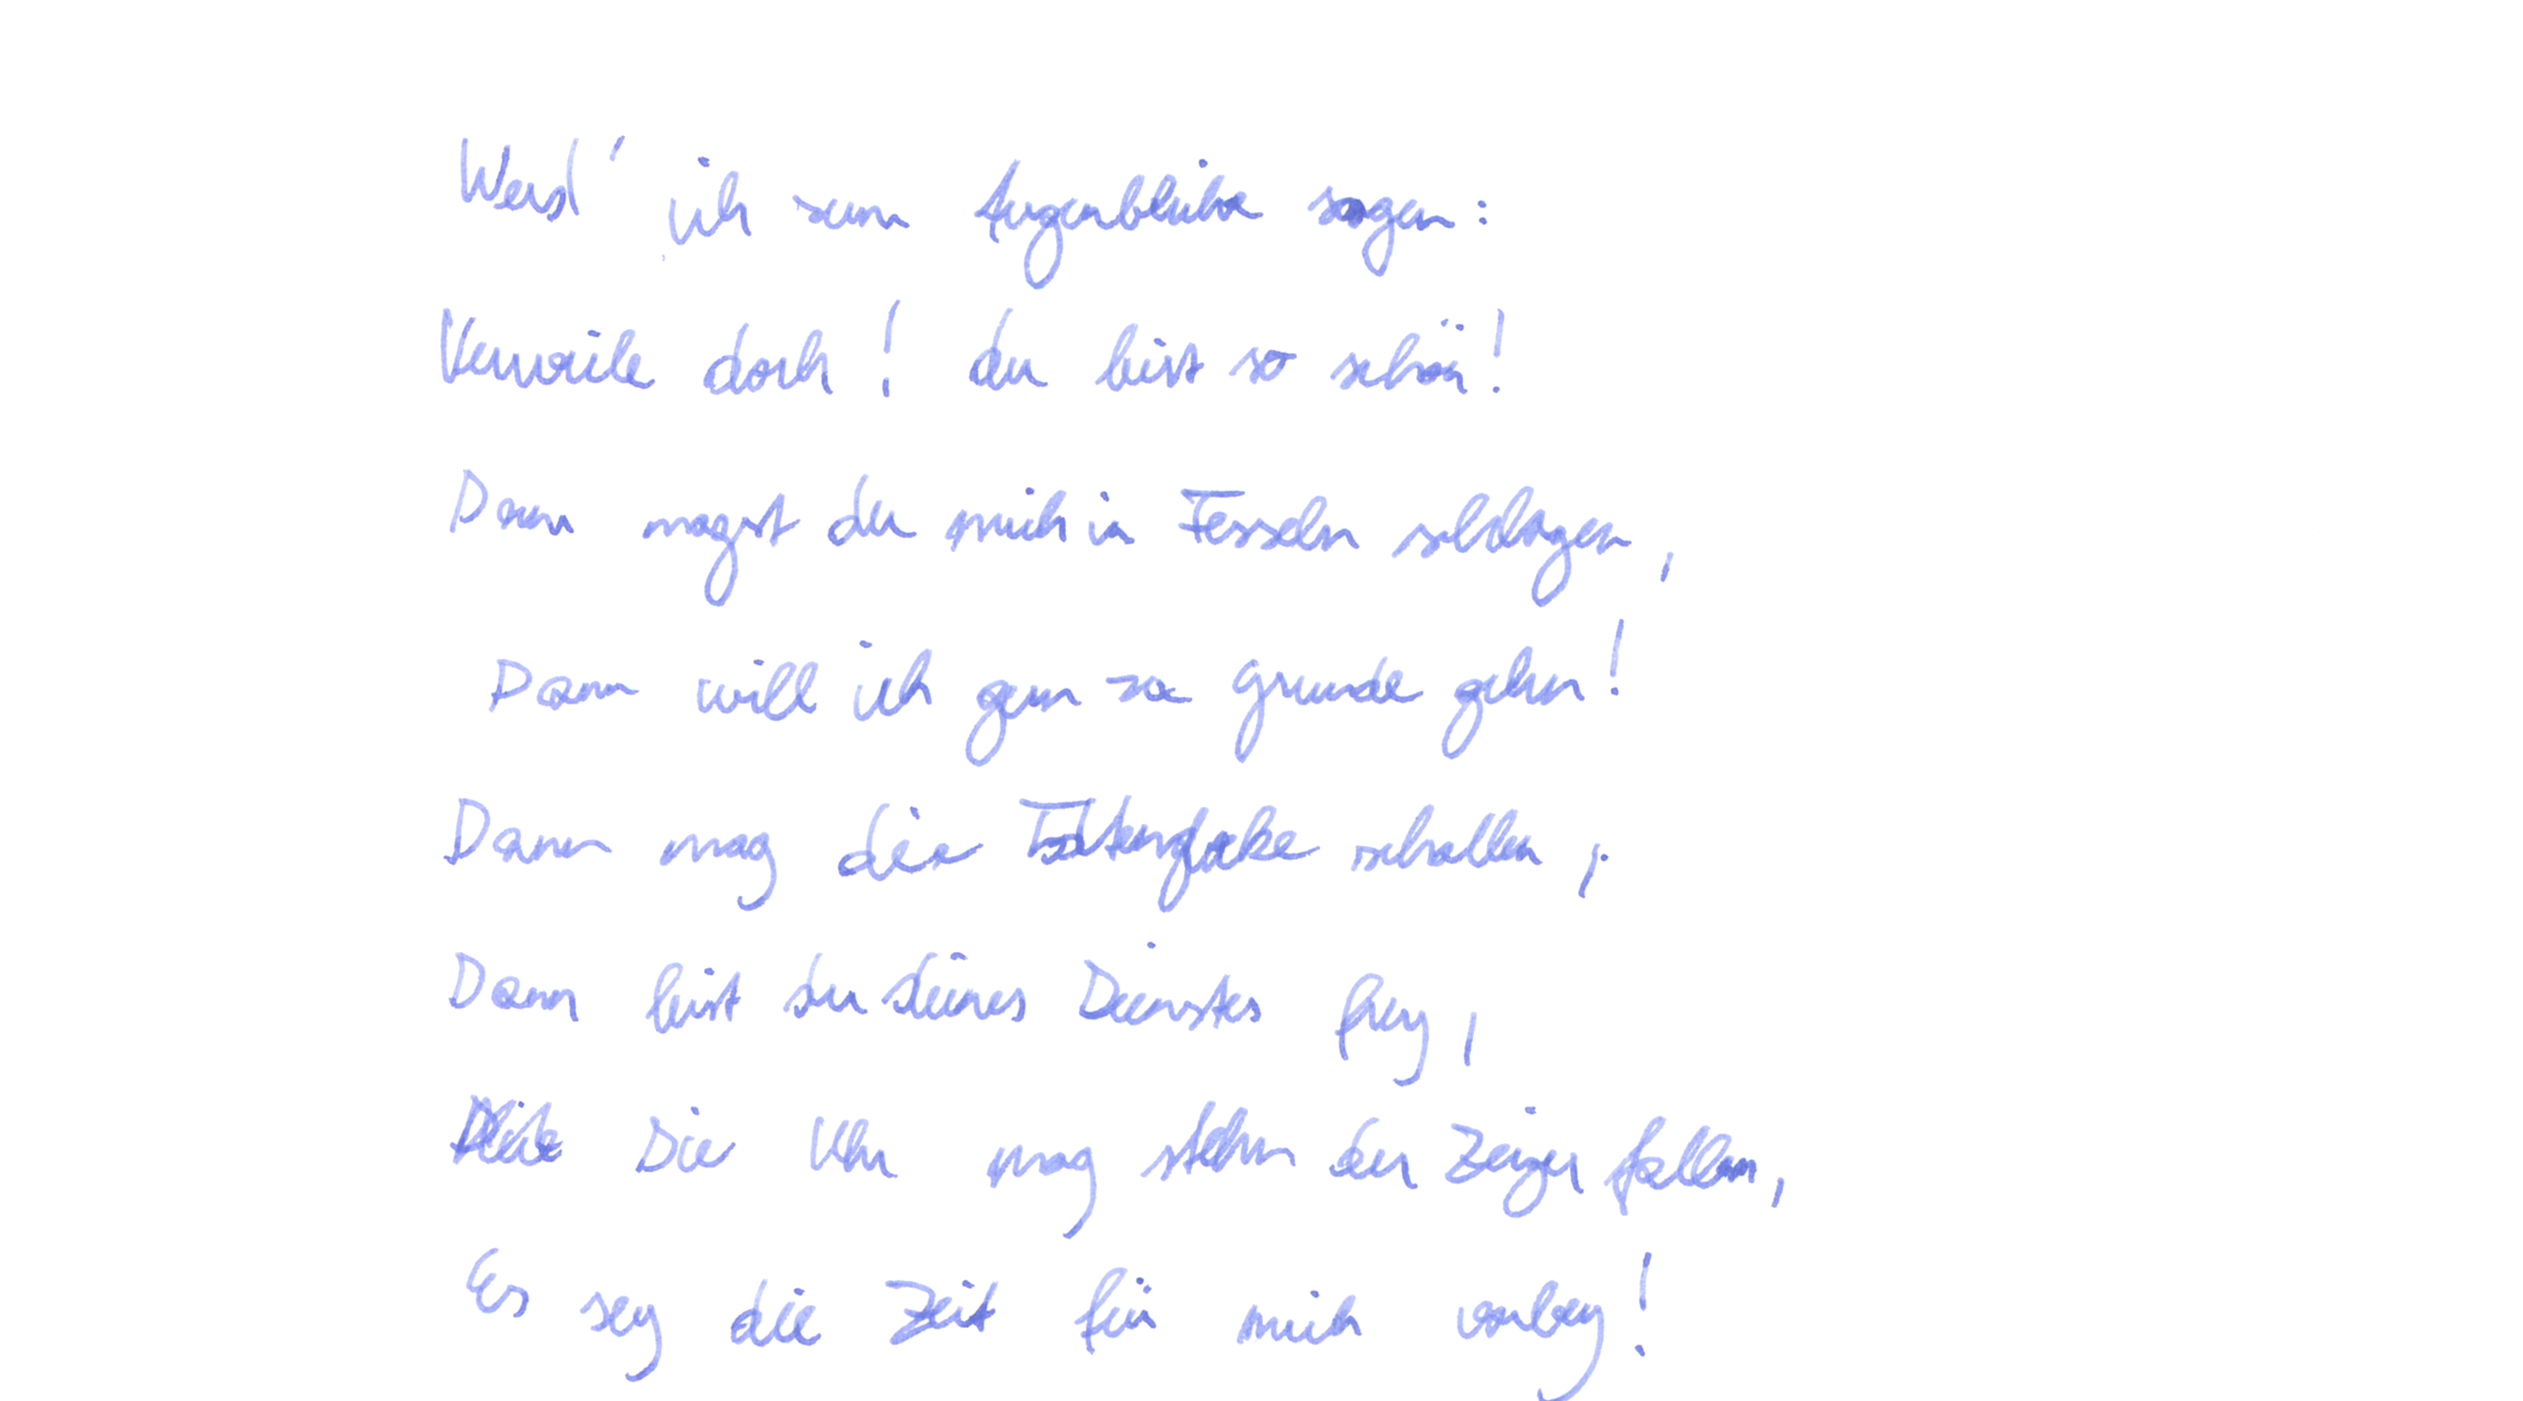 Werd' ich zum Augenblicke sagen:
Verweile doch! du bist so schön!
Dann magst du mich in Fesseln schlagen,
Dann will ich gern zu Grunde gehn!
Dann mag die Totenglocke schallen,
Dann bist du deines Dienstes frey,
Die Uhr mag stehn der Zeiger fallen,
Es sey die Zeit für mich vorbey!